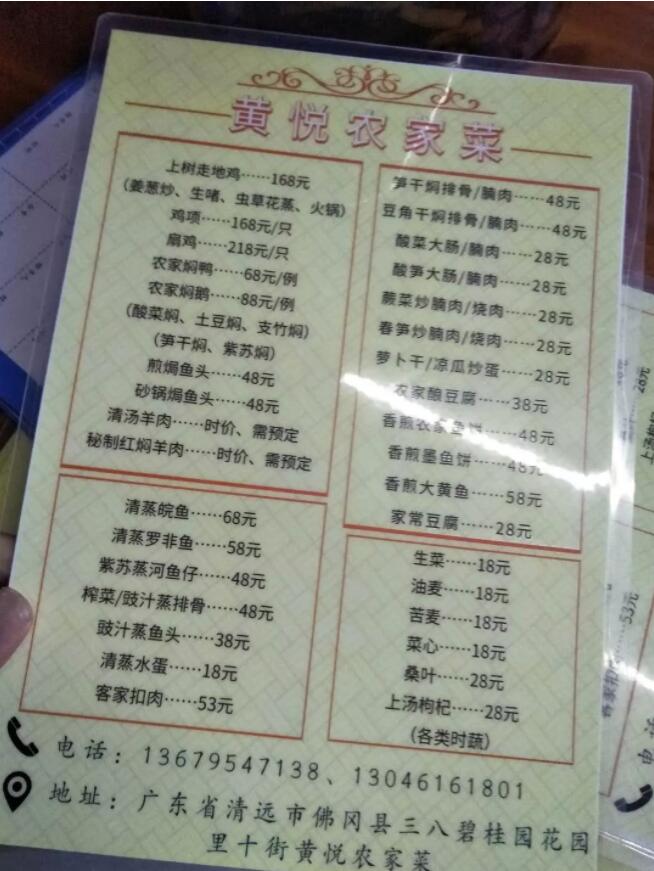 黄悦农家菜
上树走地鸡……168元
（姜葱炒、生啫、虫草花蒸、火锅）
鸡项……168元/只
扇鸡……218元/只
农家焖鸭……68元/例
农家焖鹅……88元/例
（酸菜焖、土豆焖、支竹焖）
（笋干焖、紫苏焖）
煎焗鱼头……48元
砂锅焗鱼头……48元
清汤羊肉……时价、需预定
秘制红焖羊肉……时价、需预定
笋干焖排骨/腩肉……48元
豆角干焖排骨/腩肉……48元
酸菜大肠/腩肉……28元
酸笋大肠/腩肉……28元
蕨菜炒腩肉/烧肉……28元
春笋炒腩肉/烧肉……28元
萝卜干/凉瓜炒蛋……28元
农家酿豆腐……38元
香煎农家鱼饼……48元
香煎墨鱼饼……48元
香煎大黄鱼……58元
家常豆腐……28元
清蒸皖鱼……68元
清蒸罗非鱼……58元
紫苏蒸河鱼仔……48元
榨菜/豉汁蒸排骨……48元
豉汁蒸鱼头……38元
清蒸水蛋……18元
客家扣肉……53元
生菜……18元
油麦……18元
苦麦……18元
菜心……18元
桑叶……28元
上汤枸杞……28元
（各类时蔬）
电话：13679547138、13046161801
地址：广东省清远市佛冈县三八碧桂园花园
里十街黄悦农家菜